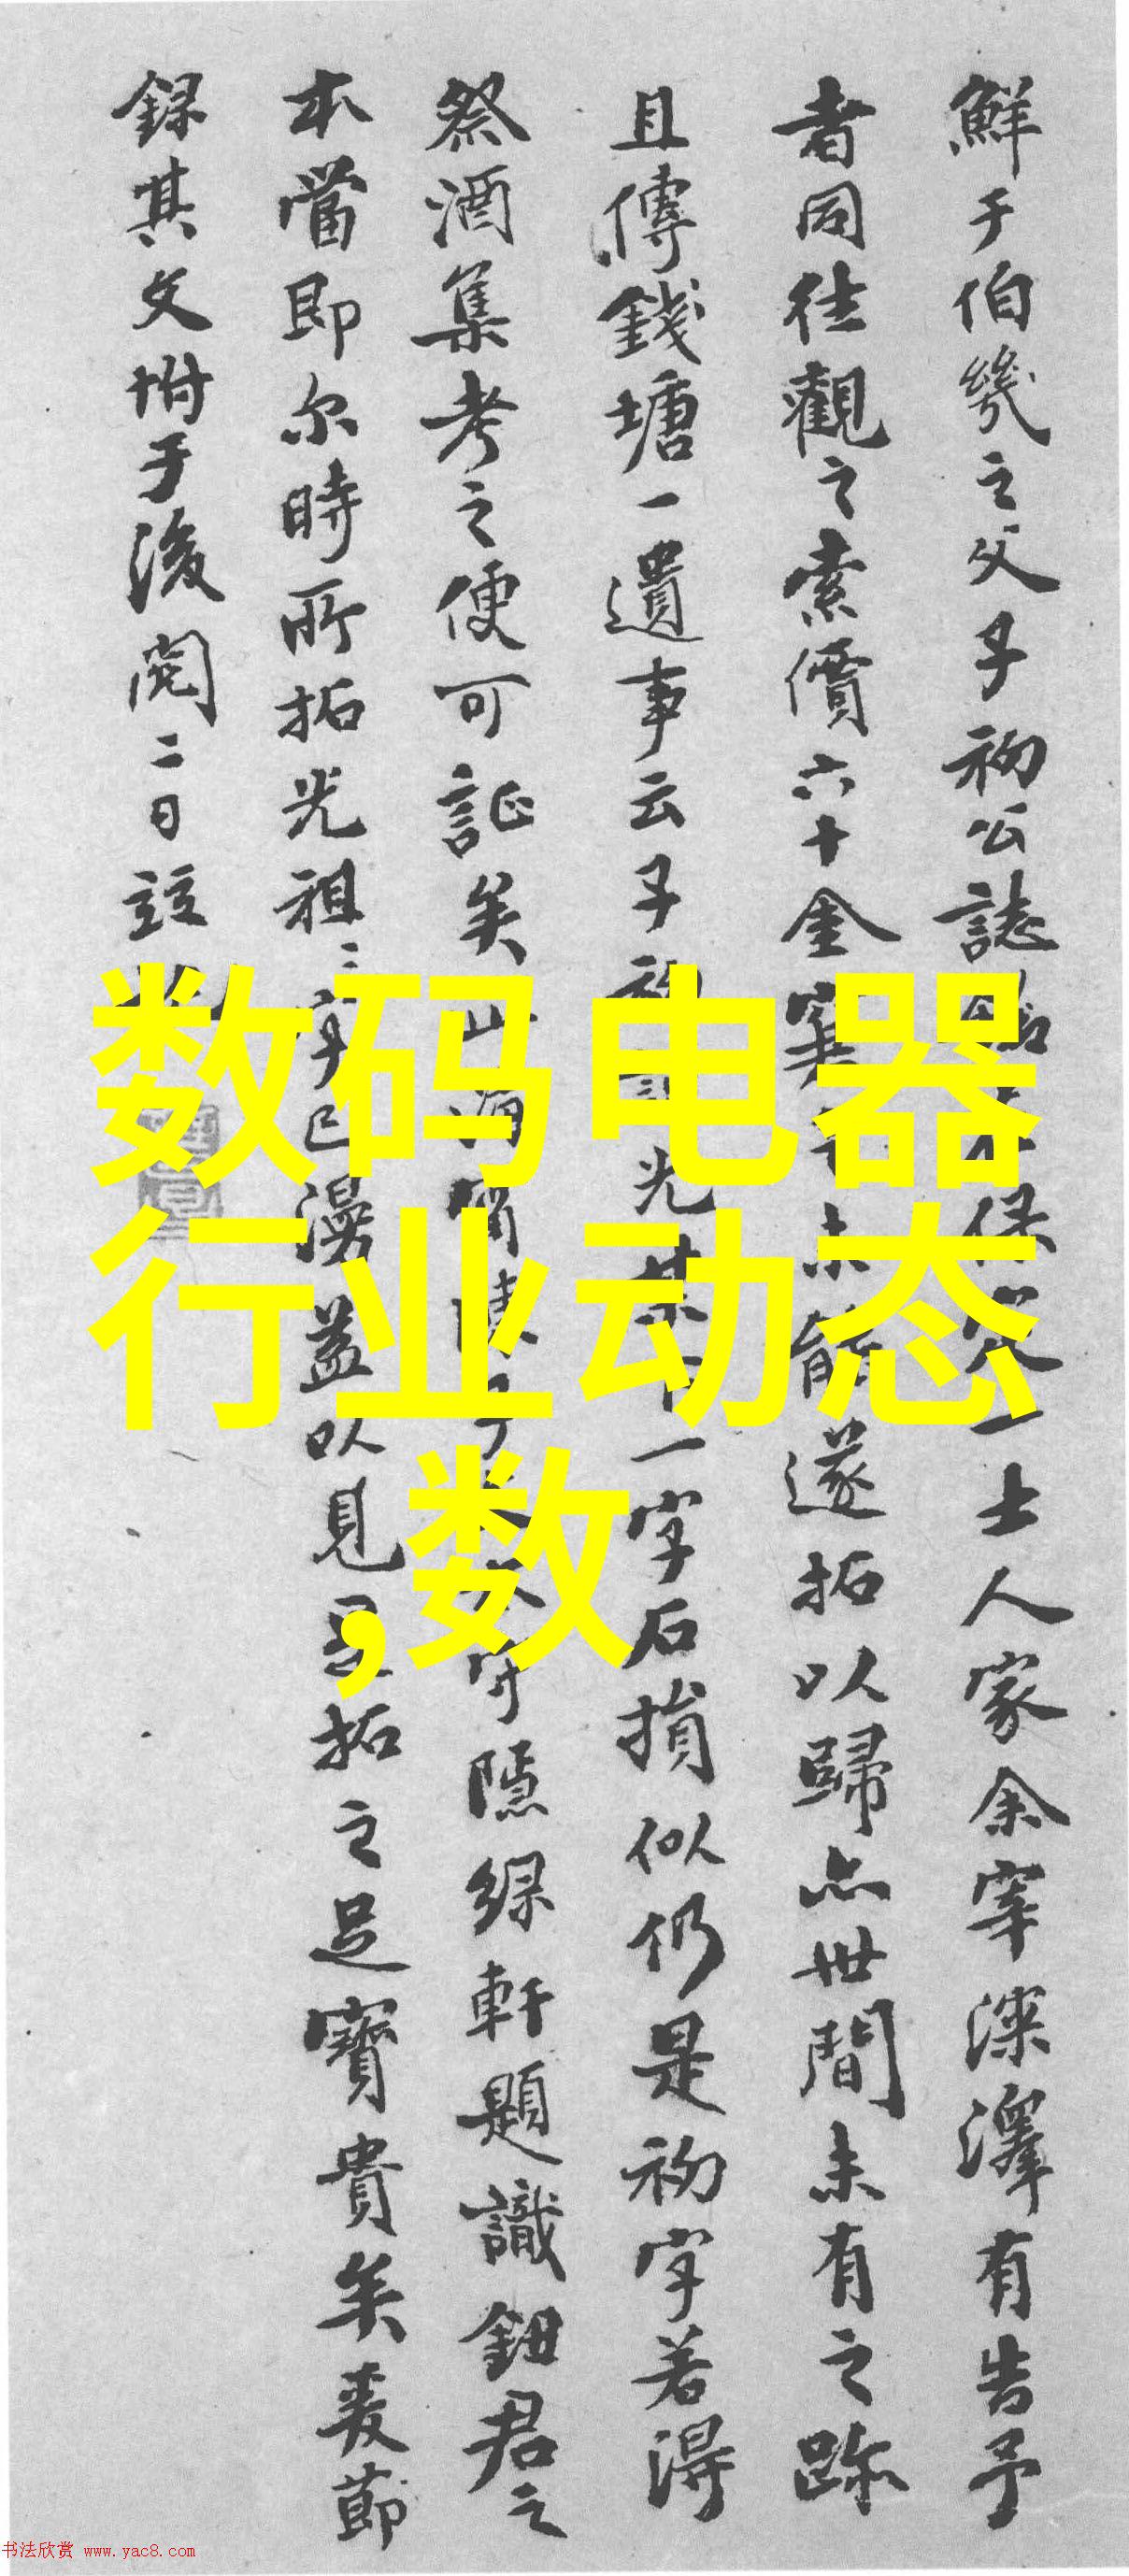 鮮于伯幾之父子初公誌
保定一士人家余宰深澤有告予
者同往觀之索價六十金窶
未能遂拓以歸亦世間未有之跡
且傳錢塘一遺事云子初
光某下一字石損似仍是初字若得
祭酒集考之便可証矣
隱綠軒題識鈕君之
本當即尔時所拓光祖
已漫益以見
拓之足寶貴矣爰節
錄其文坿于後閏二日
数码电器
行业动态
,数
书法欣赏 www.yac8.com